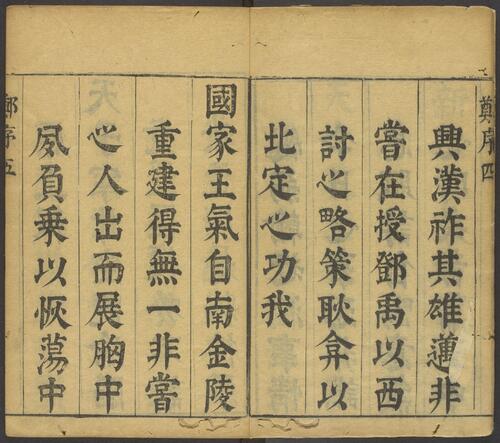 鄭序四
興漢祚其雄邁非
嘗在授鄧禹以西
討之略策耿弇以
北定之功我
國家王氣自南金陵
重建得無一非嘗
之人出而展胸中
夙負乗以恢蕩中
鄭序五